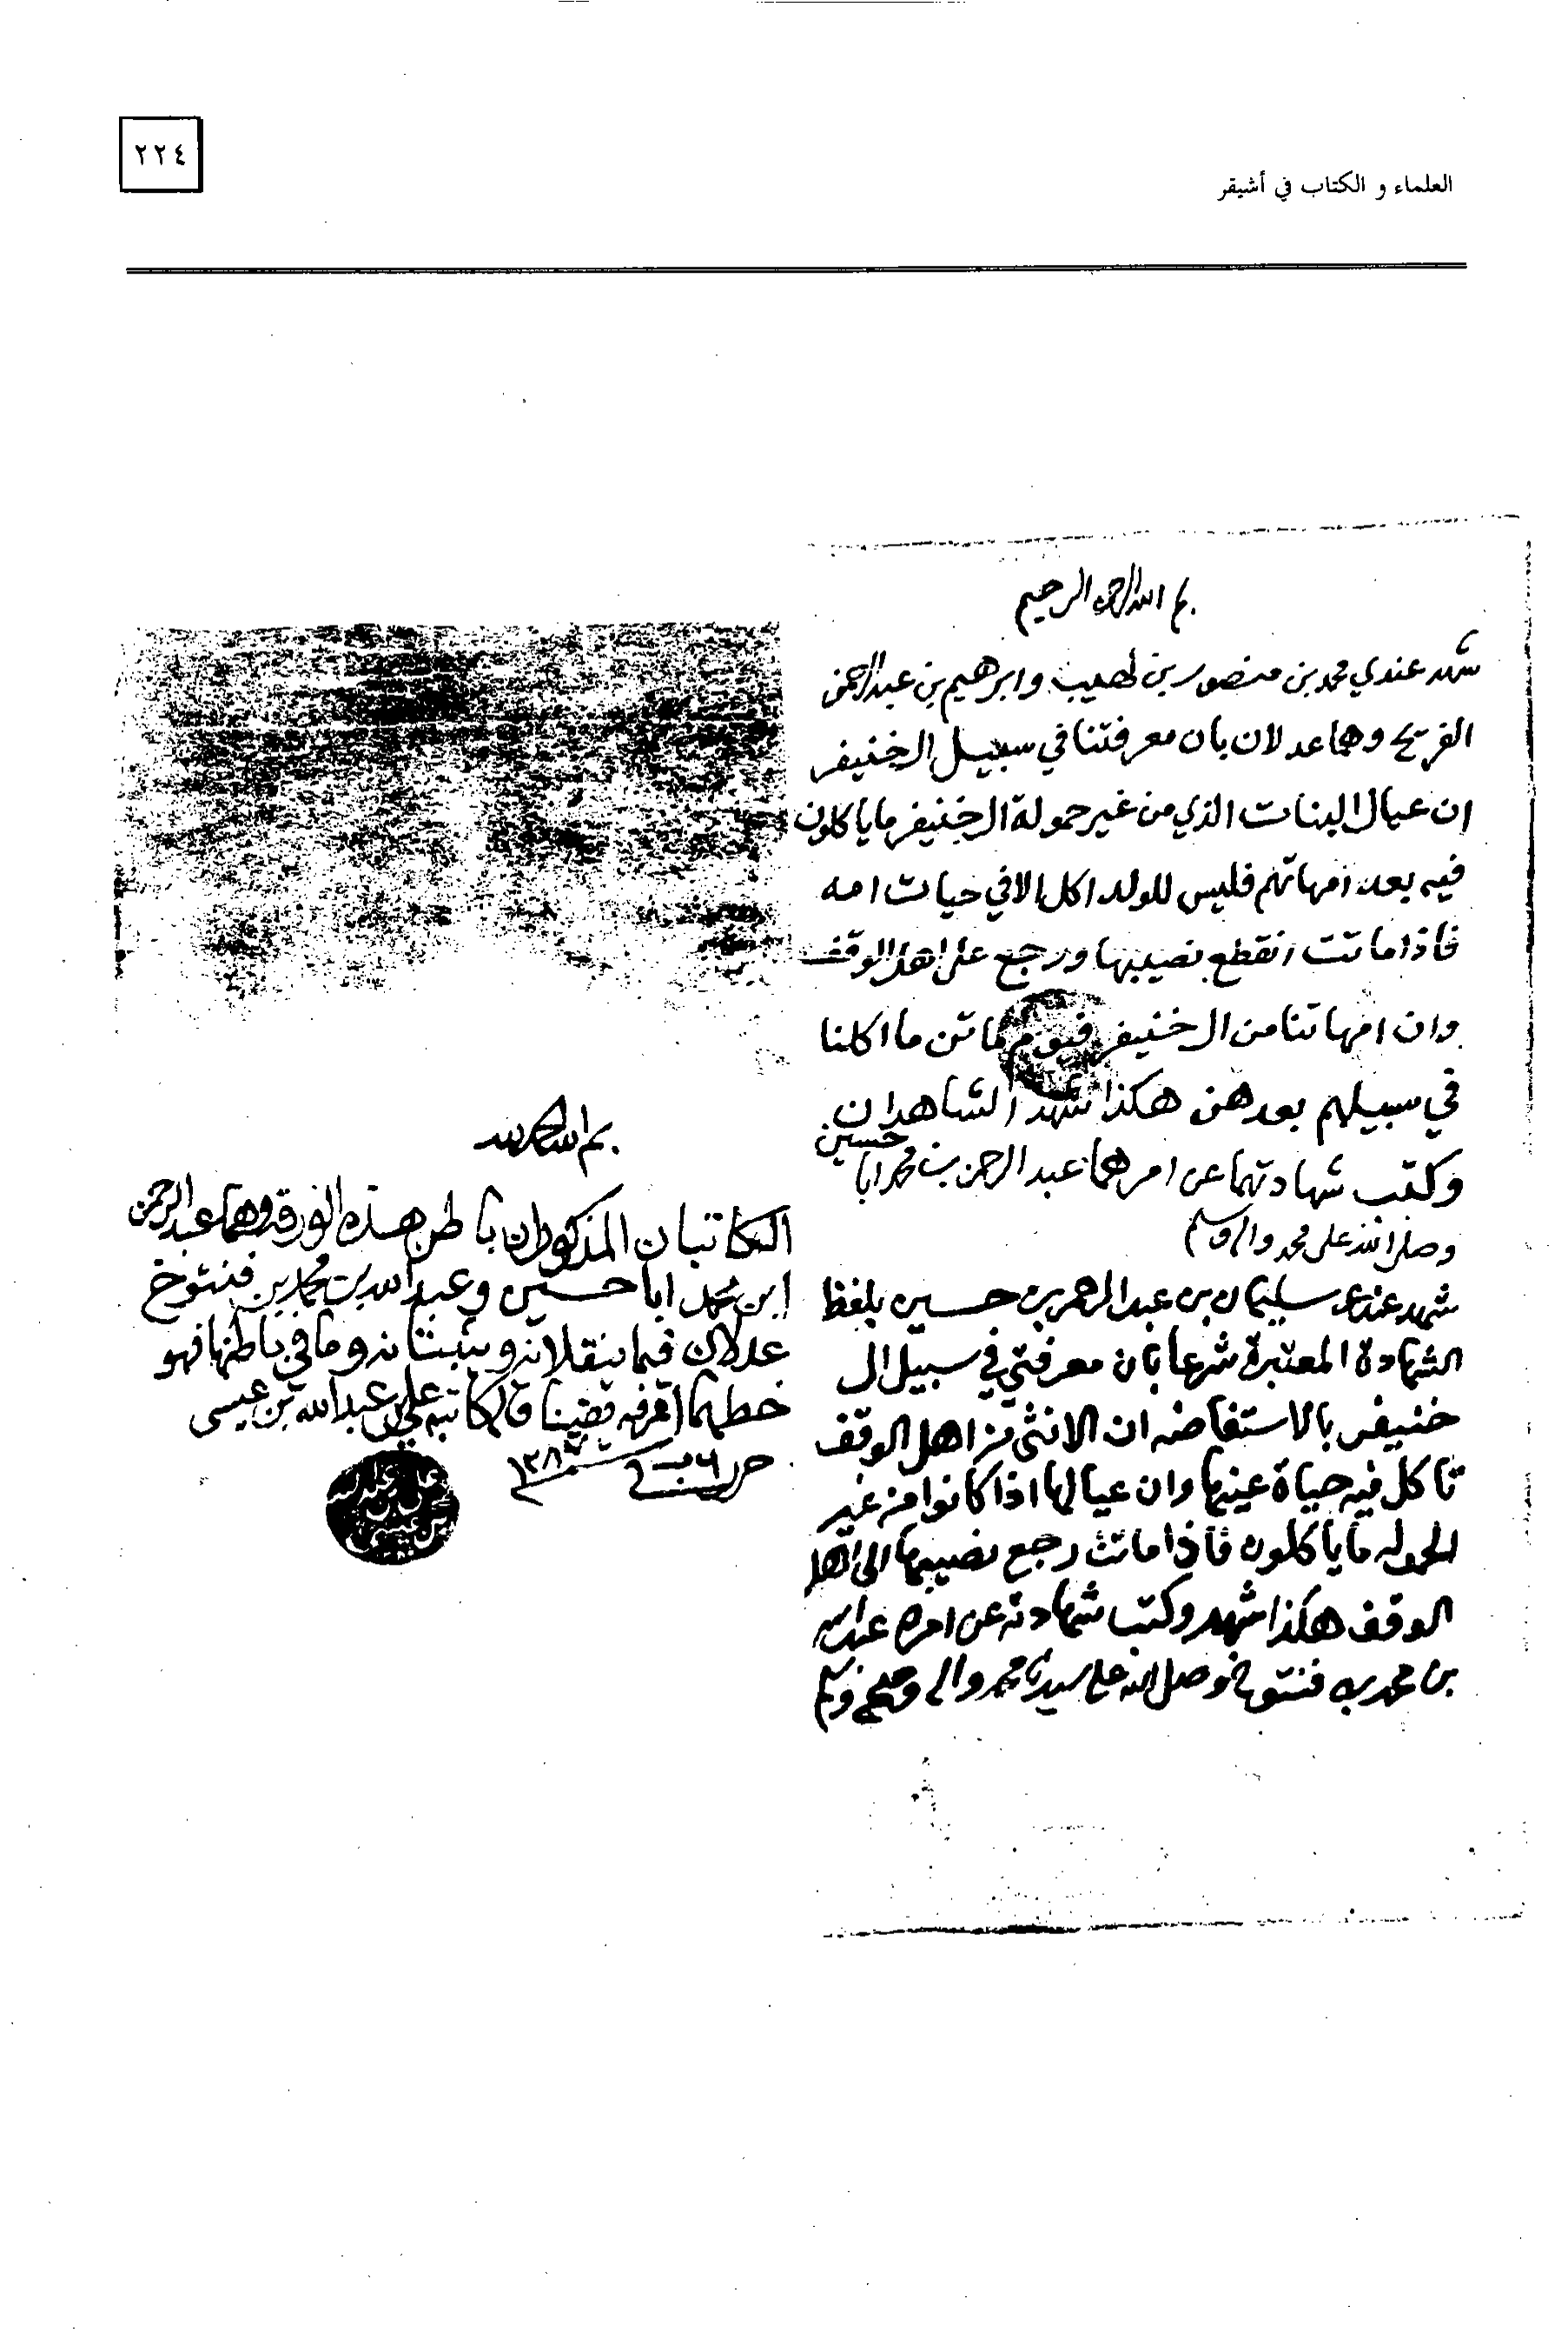 ٢٢٤
العلماء و الكتاب في أشيقر
بسم الله الرحمن الرحيم
شهد عندي محمد بن منصور بن لهيب وابرهيم بن عبدالرحمن
الفريح وهما عدلان بان معرفتنا في سبيل ال خنيفر
ان عيال البنات الذي من غير حمولة ال خنيفر ما ياكلون
فيه بعد امهاتهم فليس للولد اكل الا في حيات امه
فاذا ماتت انقطع نصيبها ورجع على اهل الوقف
وان امهاتنا من ال خنيفر فيوم ماتن ما اكلنا
في سبيلهم بعدهن هكذا شهد الشاهدان
وكتب شهادتهما عن امرهما عبد الرحمن بن محمد ابا حسين
وصلى الله على محمد واله وسلم
شهد عندي سليمان بن عبد الرحمن بن حسين بلفظ
الشهادة المعتبرة شرعا بان معرفتي في سبيل ال
خنيفر بالاستفاضه ان الانثى من اهل الوقف
تاكل فيه حياة عينها وان عيالها اذا كانوا من غير
الحموله ما ياكلون فاذا ماتت رجع نصيبها الى اهل
الوقف هكذا شهد وكتب شهادته عن امره عبد الله
بن محمد بن فنتوخ وصلى الله على سيدنا محمد واله وصحبه وسلم
بسم الله الحمد لله
الكاتبان المذكوران باطن هذه الورقه وهما عبد الرحمن
ابن محمد ابا حسين وعبد الله بن محمد بن فنتوخ
عدلان فيما ينقلانه ويثبتانه وما في باطنها فهو
خطهما اعرفه يقينا قاله كاتبه علي بن عبد الله بن عيسى